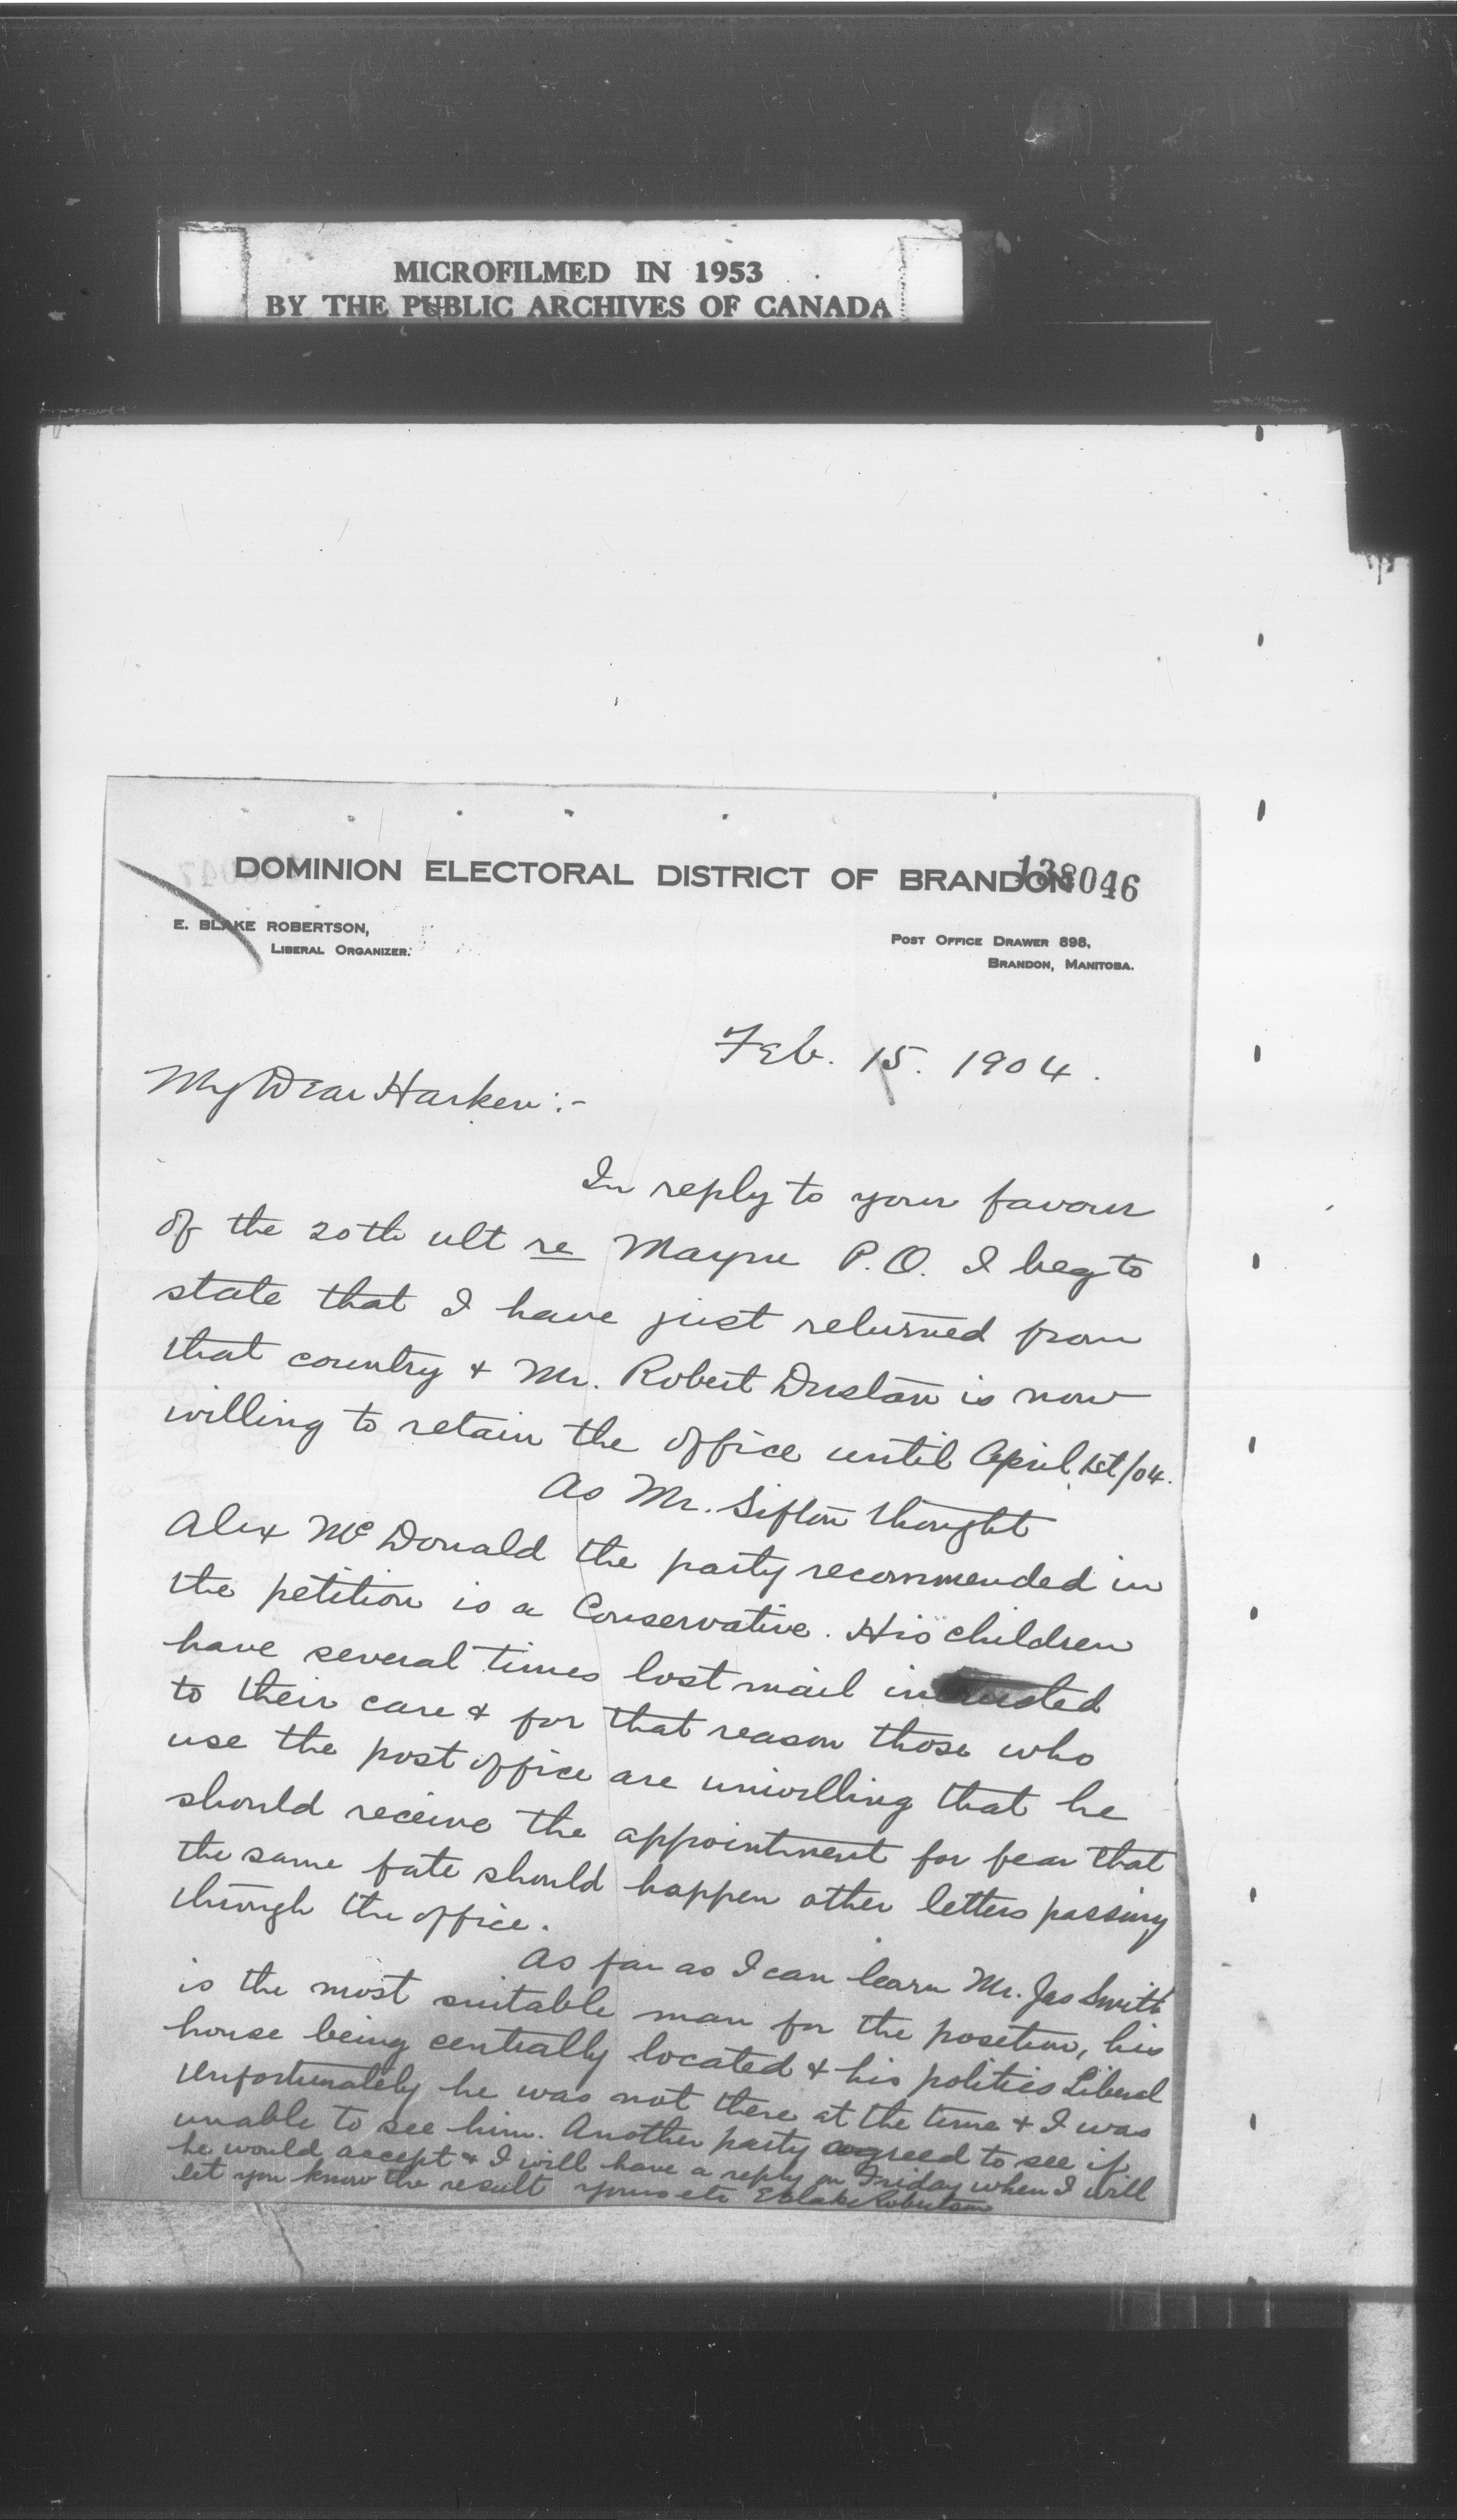 MICROFILMED IN 1953
BY THE PUBLIC ARCHIVES OF CANADA
DOMINION ELECTORAL DISTRICT OF BRANDON
138046
E. BLAKE ROBERTSON,
LIBERAL ORGANIZER.
POST OFFICE DRAWER 898,
BRANDON, MANITOBA.
Feb. 15. 1904.
My Dear Harken:-
In reply to your favour
of the 20th ult re Mayne P.O. I beg to
state that I have just returned from
that country & Mr. Robert Duslan is now
willing to retain the office until April 1st/04.
As Mr. Sifton thought
Alex McDonald the party recommended in
the petition is a Conservative. His children
have several times lost mail intrusted
to their care & for that reason those who
use the post office are unwilling that he
should receive the appointment for fear that
the same fate should happen other letters passing
through the office.
As far as I can learn Mr. Jas Smith
is the most suitable man for the position, his
house being centrally located & his politics Liberal
Unfortunately he was not there at the time & I was
unable to see him. Another party agreed to see if
he would accept & I will have a reply on Friday when I will
let you know the result yours etc EBlake Robertson